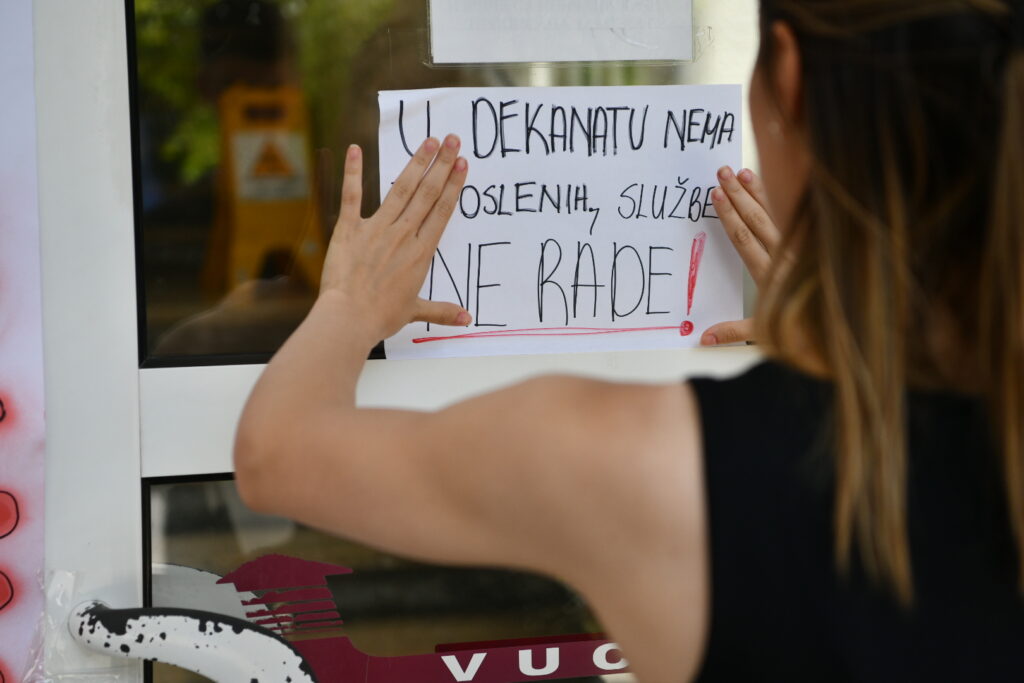 U DEKANATU NEMA
OSLENIH, SLUŽBE
NE RADE!
VUC